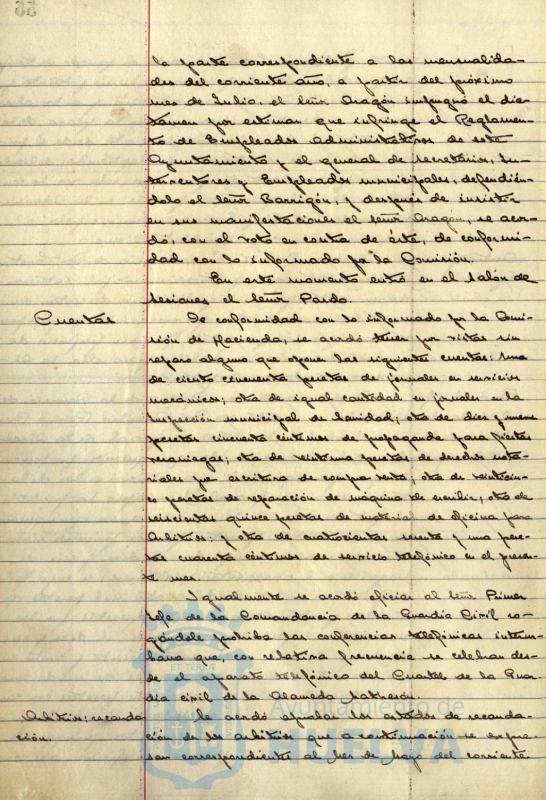 56
la parte correspondiente a las mensualida-
des del corriente año, a partir del próximo
mes de Julio, el Señor Aragón impugnó el dic-
tamen por estimar que infringe el Reglamen-
to de Empleados Administrativos de este
Ayuntamiento y el general de Secretarios, In-
terventores y Empleados municipales, defendién-
dolo el Señor Barrigón, y después de insistir
en sus manifestaciones el Señor Aragón, se acor-
dó, con el voto en contra de éste, de conformi-
dad con lo informado por la Comisión.
En este momento entró en el Salón de
Sesiones el Señor Pardo.
Cuentas
De conformidad con lo informado por la Comi-
sión de Hacienda, se acordó tener por vistas sin
reparo alguno que oponer las siguientes cuentas: Una
de ciento cincuenta pesetas de jornales en servicios
mecánicos; otra de igual cantidad en jornales en la
Inspección municipal de Sanidad; otra de diez y nueve
pesetas cincuenta céntimos de propaganda para fiestas
veraniegas; otra de veintiuna pesetas de derechos nota-
riales por escritura de compra venta; otra de veinticin-
co pesetas de reparación de máquina de escribir; otra de
seiscientas quince pesetas de material de oficina para
Arbitrios; y otra de cuatrocientas sesenta y una pese-
tas cuarenta céntimos de servicio telefónico en el presen-
te mes.
Igualmente se acordó oficiar al Señor Primer
Jefe de la Comandancia de la Guardia Civil ro-
gándole prohiba las conferencias telefónicas interur-
banas que, con relativa frecuencia se celebran des-
de el aparato telefónico del Cuartel de la Guar-
dia civil de la Alameda Sundheim.
Arbitrios: recauda-
ción.
Se acordó aprobar los estados de recauda-
ción de los arbitrios que a continuación se expre-
san correspondientes al mes de Mayo del corriente
Ayuntamiento de
HUELVA